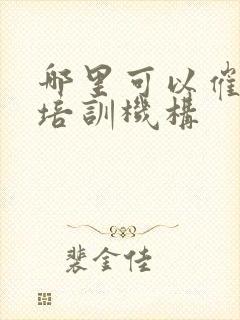 哪里可以催
培訓機構
裴金佳